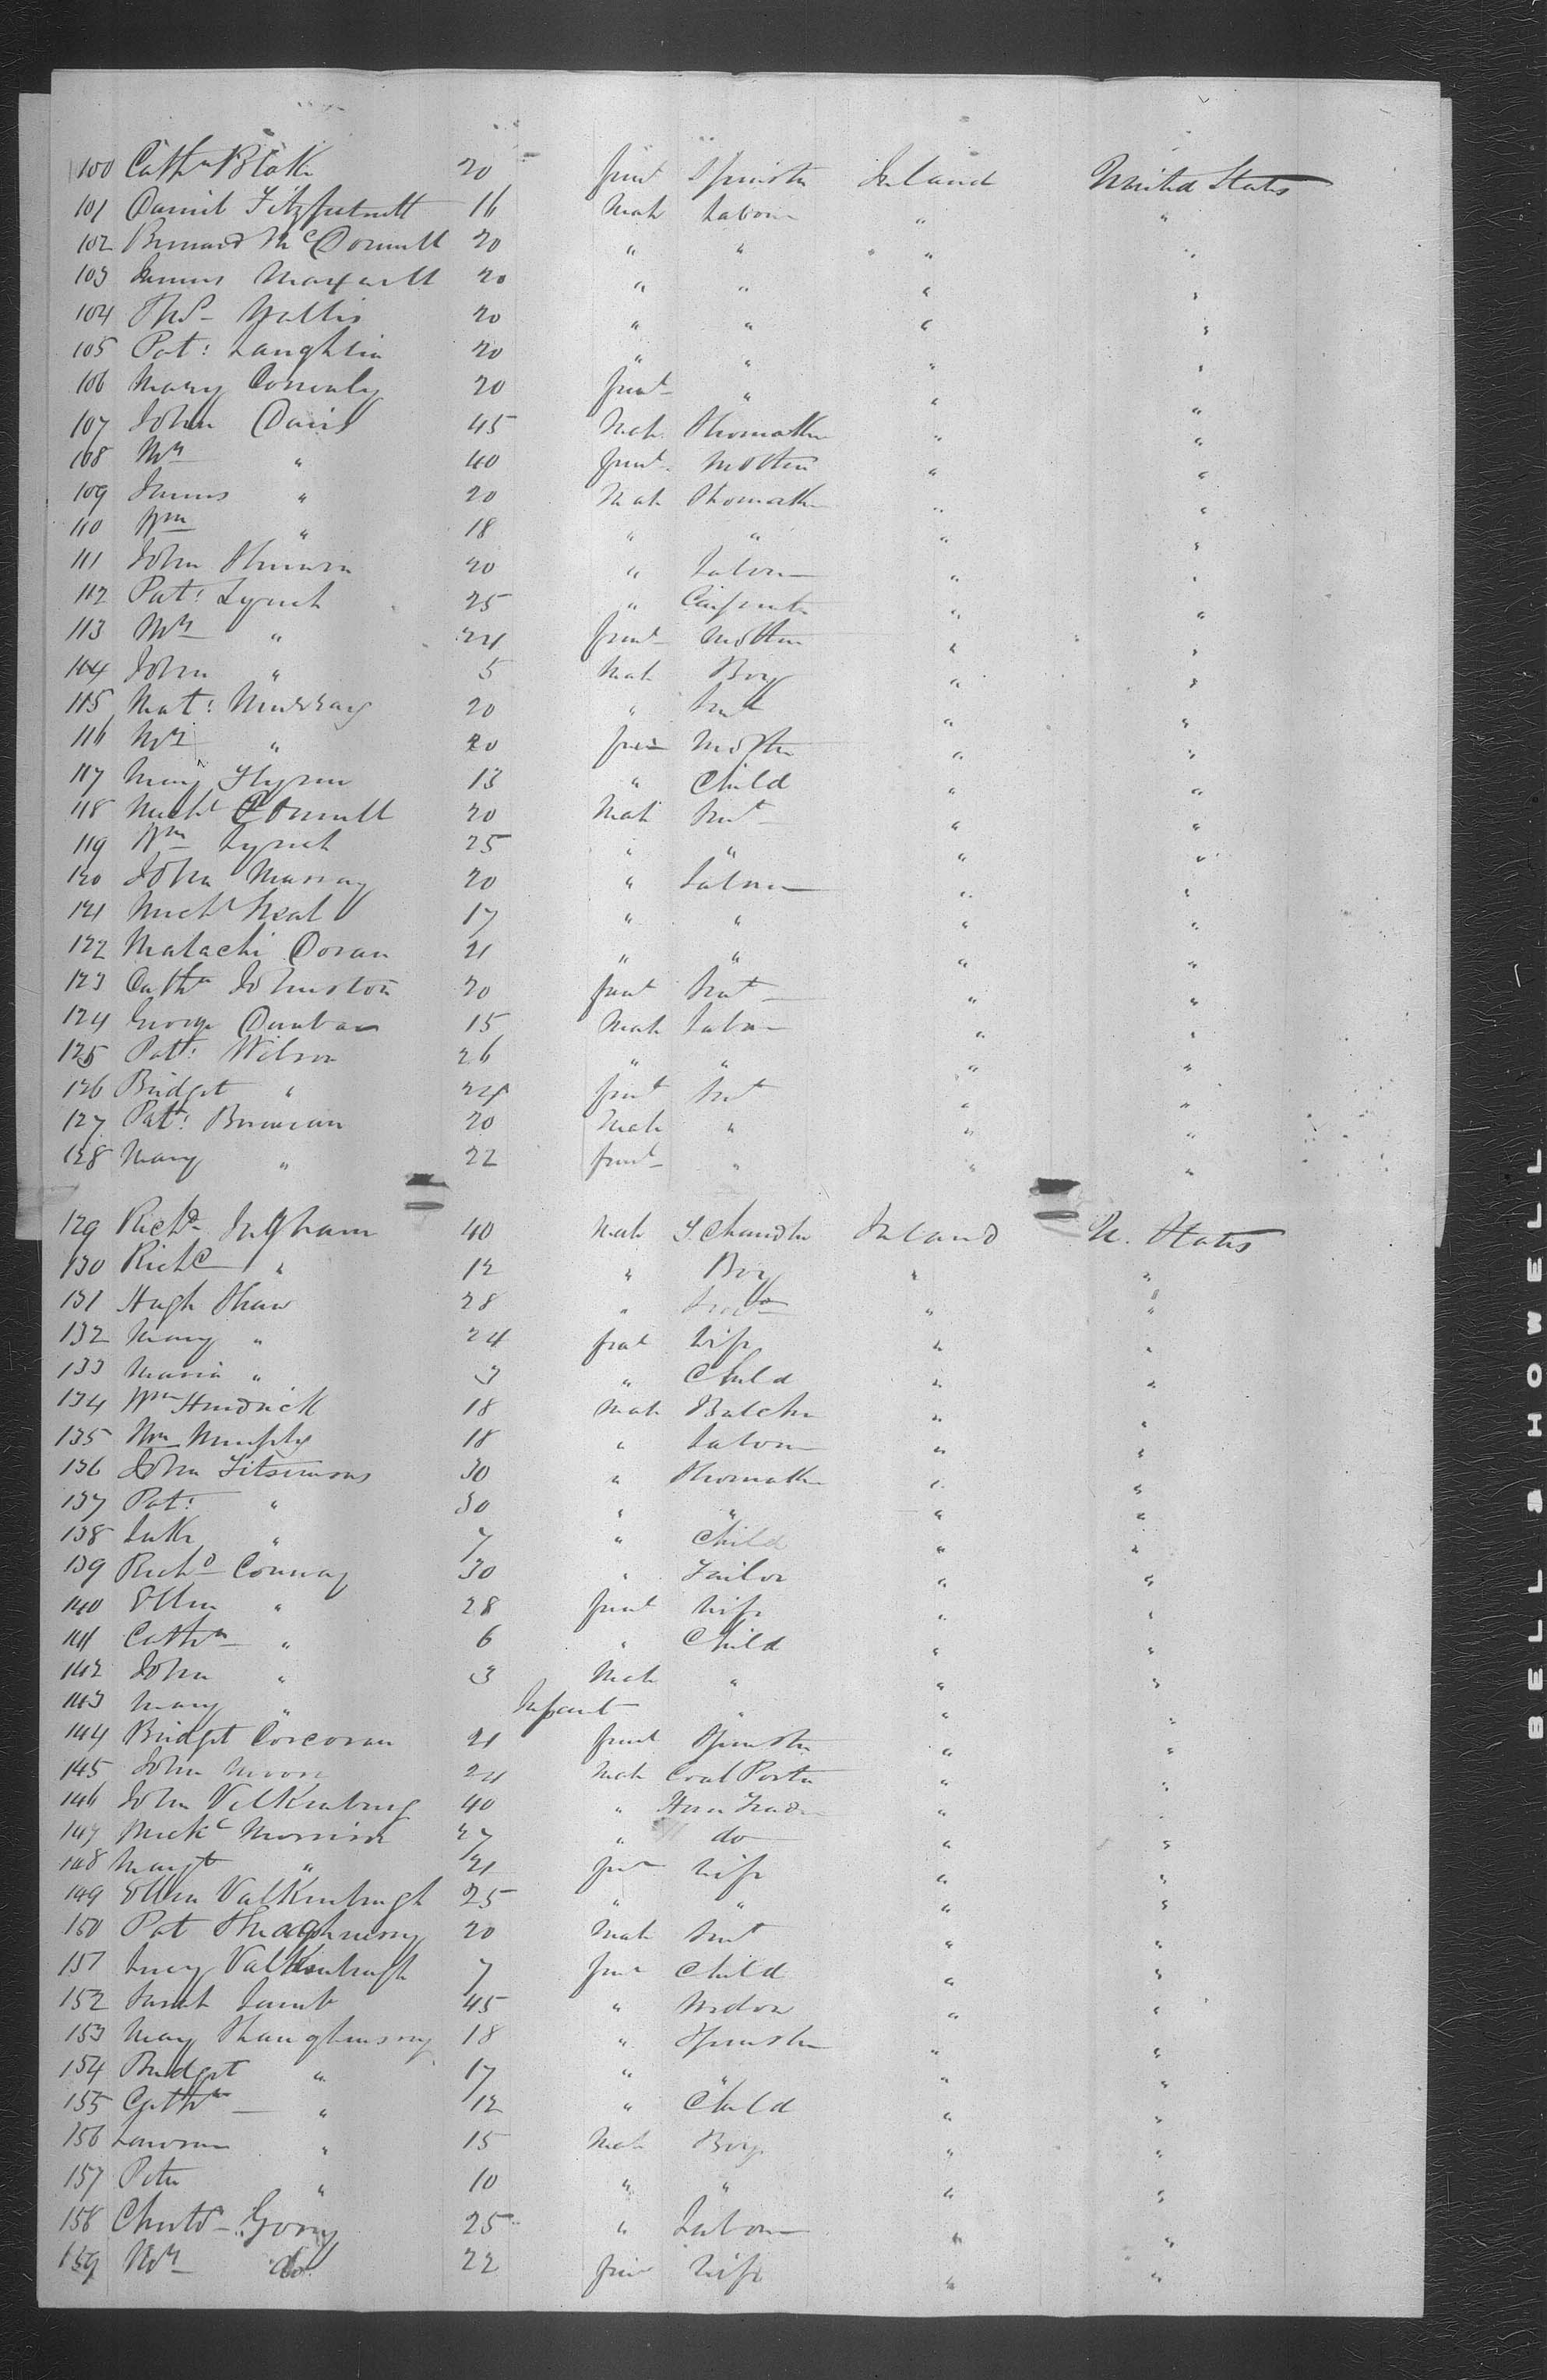 100 Cathn Blake 20 female Spinster Ireland United States
101 Daniel Fitzpatrick 16 Male Labourer " "
102 Bernard McDonnell 20 " " " "
103 James Maxwell 20 " " " "
104 Thos Wallis 20 " " " "
105 Pat: Laughlin 20 " " " "
106 Mary Connaly 20 female " " "
107 John Davis 45 Male Shoemaker " "
108 Mrs " 40 female Mother " "
109 James " 20 Male Shoemaker " "
110 Wm " 18 " " " "
111 John 20 " Labourer " "
112 Pat: Lynch 25 " Carpenter " "
113 Mrs " 24 female Mother " "
114 John " 5 Male Boy " "
115 Mat: Murray 20 " " "
116 Mrs " 20 female Mother " "
117 Mary Flynn 13 " Child " "
118 Michl 20 Male " "
119 Wm Lynch 25 " " " "
120 John Murray 20 " Labourer " "
121 Michl Neal 17 " " " "
122 Malachi Doran 21 " " " "
123 Cathn Johnston 20 female " "
124 George Dunbar 15 Male Labourer " "
125 Patt: Wilson 26 " " " "
126 Bridget " 24 female " "
127 Pat: Brennan 20 Male " " "
128 Mary " 22 female " " "
129 Richd Ingham 40 Male T Chandler Ireland U. States
130 Richd " 12 " Boy " "
131 Hugh Shaw 28 " " "
132 Mary " 24 female Wife " "
133 Maria " 3 " Child " "
134 Wm Hendrick 18 Male Butcher " "
135 Wm Murphy 18 " Labourer " "
136 John Fitsimons 30 " Shoemaker " "
137 Pat: " 30 " " " "
138 Luke " 7 " Child " "
139 Richd Conway 30 " Tailor " "
140 Ellen " 28 female Wife " "
141 Cathn " 6 " Child " "
142 John " 3 Male " " "
143 Mary " Infant " " "
144 Bridget Corcoran 21 female Spinster " "
145 John Moore 24 Male Coal Porter " "
146 John Valkenburg 40 " " "
147 Mick Morrison 27 " do " "
148 Margt " 21 female Wife " "
149 Ellen Valkenburgh 25 " " " "
150 Pat Shaughnessy 20 Male " "
151 Lucy Valkenburgh 7 female Child " "
152 Sarah Lamb 45 " Widow " "
153 Mary Shaughnessy 18 " Spinster " "
154 Bridget " 17 " " " "
155 Cathn " 12 " Child " "
156 Lawrence " 15 Male Boy " "
157 Peter " 10 " " " "
158 Christr Gorry 25 " Labourer " "
159 Mrs do 22 female Wife " "
BELL & HOWELL